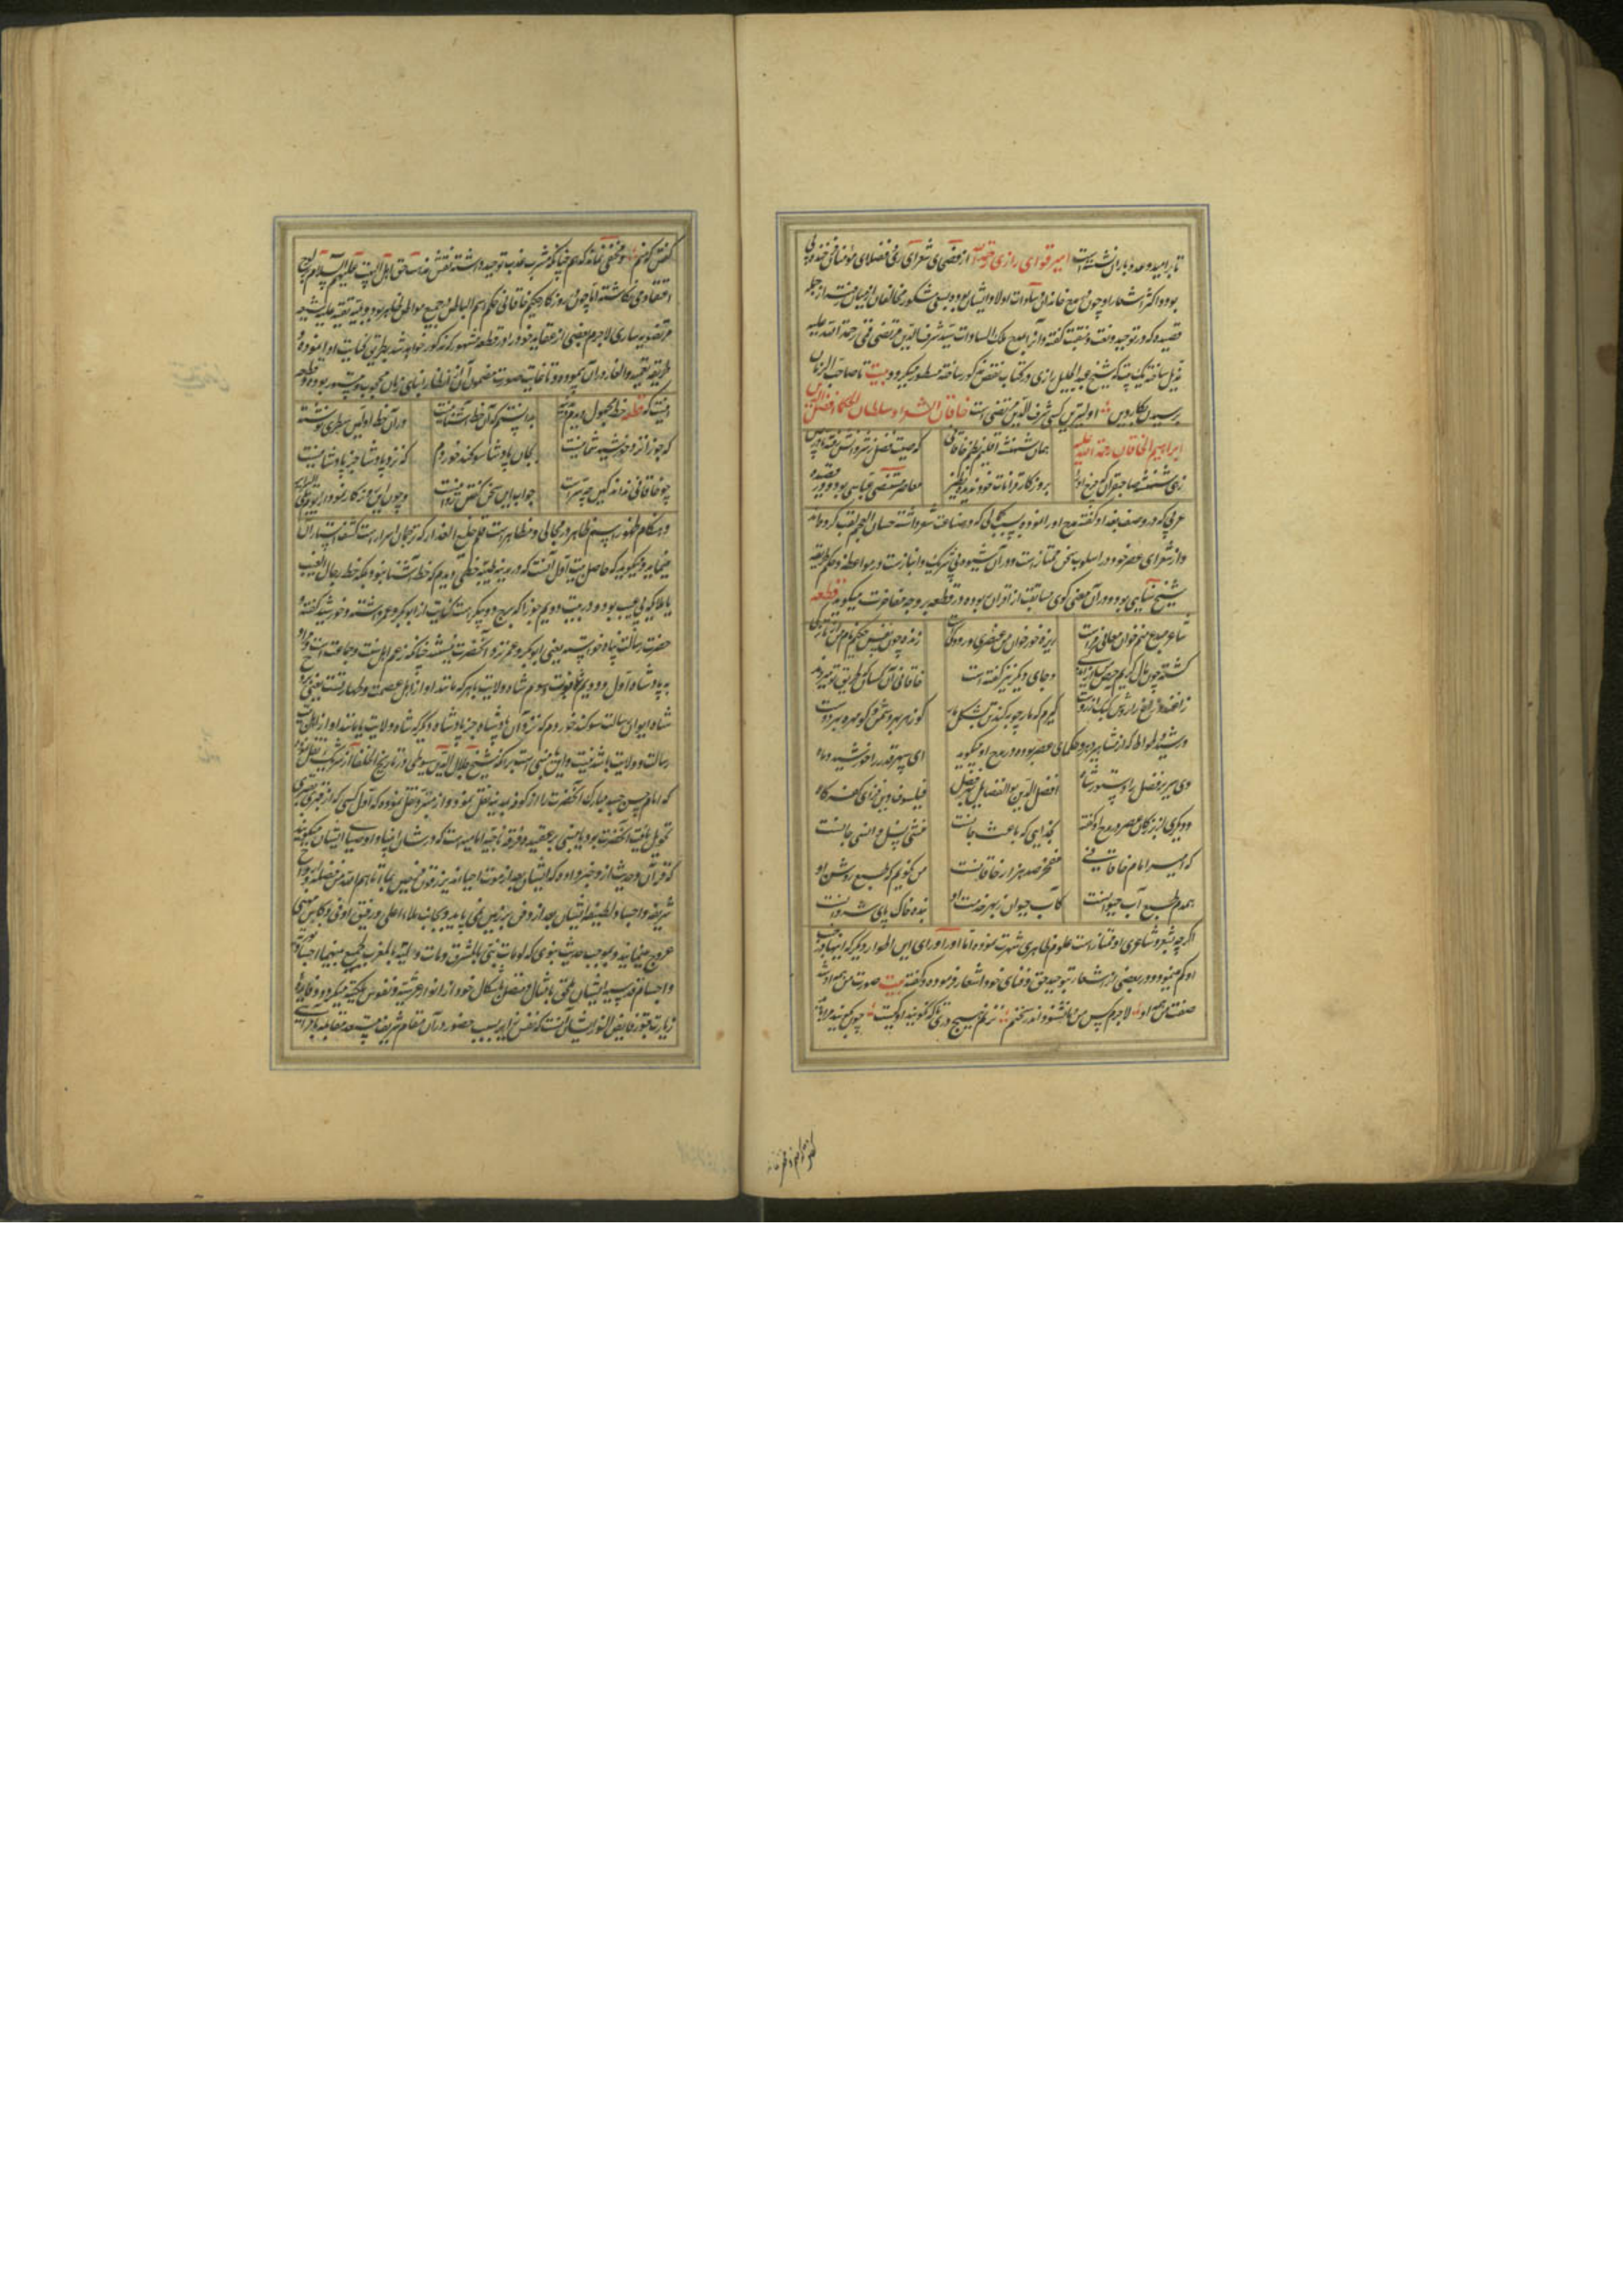 تا بر امید وعده باران نشسته است امیر قوامی رازی قدس از فصحای شعرای ری و فضلای
بود و اکثر اشعار او چون مدح خاندان سادات و اولاد ایشان بود بسعی مشکور مخالفان از میان رفته از جمله
قصیده که در توحید و نعت و منقبت گفته و آنرا بمدح ملک السادات سید شرف الدین مرتضی قمی رحمة الله علیه
تذییل ساخته یک بیت که شیخ عبد الجلیل رازی در کتاب نقض مذکور ساخته مسطور میگردد بیت تا صاحب الزمان
برسیدن بکار دین اولیترین کسی شرف الدین مرتضی است خاقان الشعراء و سلطان الحکما افضل الدین
ابراهیم الخاقانی رحمة الله علیه جهان شهنشه اقلیم نظم خاقانی که صیت فضل ز شروانش
زهی شهنشه صاحبقران که چرخ او را بروزگار و قرانات خود ندید نظیر معاصر مستضی عباسی بود و در قصیده
عربی که در وصف بغداد گفته مدح او را نموده بسبب کمالی که در صناعت شعر داشته حسان العجم لقب کرده‌اند
و از شعرای عصر خود در اسلوب سخن ممتاز است و در آن شیوه بی شریک و انباز است در مواعظ و حکم طریقه
شیخ سنایی بوده و در آن معنی گوی مسابقت از اقران ربوده در قطعه بر وجه مفاخرت میگوید قطعه
شاعر مبدع منم خوان معانی مراست ریزه خور خوان من عنصری و رودکی زنده چون نفس حکیم نام من از تازگی
گشته چون مال کریم حرص من از اندکی و جای دیگر نیز گفته است خاقانی آن کسان که طریق تو میروند
زاغند و زاغ را روش کبک آرزوست گیرم که مار چوبه کند تن بشکل مار کو زهر بهر دشمن و کو مهره بهر دوست
و رشید وطواط که از مشاهیر و حکمای عصر بوده در مدح او میگوید ای سپهر قدر را خورشید و ماه
وی سریر فضل را دستور شاه افضل الدین بو الفضایل بحر فضل فیلسوف دین فزای کفر کاه
و دیگری از بزرگان عصر در مدح او گفته بخدایی که باعث جانست منشی انسی و جانست
که امیر امام خاقانی مفخر صد هزار خاقانست من نگویم که طبع روشن او
همدم طبع آب حیوانست کآب حیوان ز بهر خدمت او بنده خاک پای شروانست
اگر چه بشعر و شاعری او ممتاز است علوم ظاهری شهرت نموده اما او را ورای این اطوار دیگر که اینها در جنب
او گم مینمود و در بعضی از اشعار بتوحید حق و فنای خود اشعار فرموده و گفته بیت صورت من همه او شد
صفت من همه او لاجرم کس من و ما نشنود اندر سخنم نزنم هیچ دری تا که نگویند او کیست چون بگویند مرا باید
گفتن که منم و مخفی نماند که همچنانکه مشرب عذب توحید داشته نقش مذهب حق اهل البیت علیهم السلام بر لوح
اعتقاد می‌نگاشته اما چون روزگار حکیم خاقانی حکم اسم الباطن در جمیع مواطن ظاهر بود و وقت تقیه علیه شیعه
مرتضویه ساری لاجرم بعضی از عقاید خود را در قطعه مشهور که مذکور خواهد شد بطریق کنایت ادا نموده و
طریقه تعمیه و الغاز در آن پیموده و تا غایت صورت مضمون آن از انظار ابنای زمان محجوب و مستور بوده و قطعه
اینست که قطعه خط مجهول دیدم در مدینه بدانستم که آن خط آشنا نیست در آن خط اولین سطری نوشته
که جوزا نزد خورشید شما نیست بجان پادشا سوگند خوردم که نزد پادشا جز پادشا نیست
چو خاقانی نداند کین چه سر است جواب این سخن گفتن روا نیست و چون این روزگار
و هنگام ظهور اسم ظاهر در مجالی و مظاهر است قلم خلیع العذار که ترجمان اسرار است کشف استار آن
مینماید و میگوید که حاصل بیت اول آنست که در مدینه طیبه خطی دیدم که خط آشنا نبود بلکه خط رجال الغیب
یا ملایکه بی عیب بود و در بیت دویم جوزا که برج دو پیکر است کنایت از ابوبکر و عمر داشته و خورشید گفته و
حضرت رسالت پناه خواسته یعنی ابوبکر و عمر نزد آنحضرت نیستند چنانکه زعم اهل سنت و جماعت است و مراد
به پادشاه اول و دویم شاه نبوت و سوم شاه ولایت یا هر که مانند او از اهل عصمت و طهارتست یعنی بروح
شاه ایوان رسالت سوگند خوردم که نزد آن پادشاه جز پادشاه دیگر که شاه ولایت یا مانند او از اهل بیت
رسالت و ولایت باشد نیست و این مبنی است بر آنکه شیخ جلال الدین سیوطی در تاریخ الخلفا از شریک نقل نموده
که امام حسن جسد مبارک آنحضرت را از کوفه بمدینه نقل نمود و از مبرد نقل نموده که اول کسی که از قبری بقبری
تحویل یافت آنحضرت بود یا مبنی بر عقیده فرقه ناجیه امامیه است که در شان انبیا و اوصیاء ایشان میگویند
که قرآن و حدیث از آن خبر داده که ایشان بعد از موت احیاء عند ربهم یرزقون فرحین بما آتاهم الله من فضله و ارواح
شریفه و اجساد لطیفه ایشان بعد از دفن بر زمین نمی پاید و بجانب ملاء اعلی و رفیق اوفی
عروج مینمایند و بموجب حدیث نبوی که لو مات نبی بالمشرق و مات وصیه بالمغرب لجمع بینهما اجساد
و اجسام قدسیه ایشان ملحق بامثال و متصل باشکال خود از انوار عرشیه و نفوس ملکیه میگردد و فایده
زیارت قبور فایض النور ایشان آنست که نفس زایر بسبب حضور در آن مقام شریف مستعد مقابله